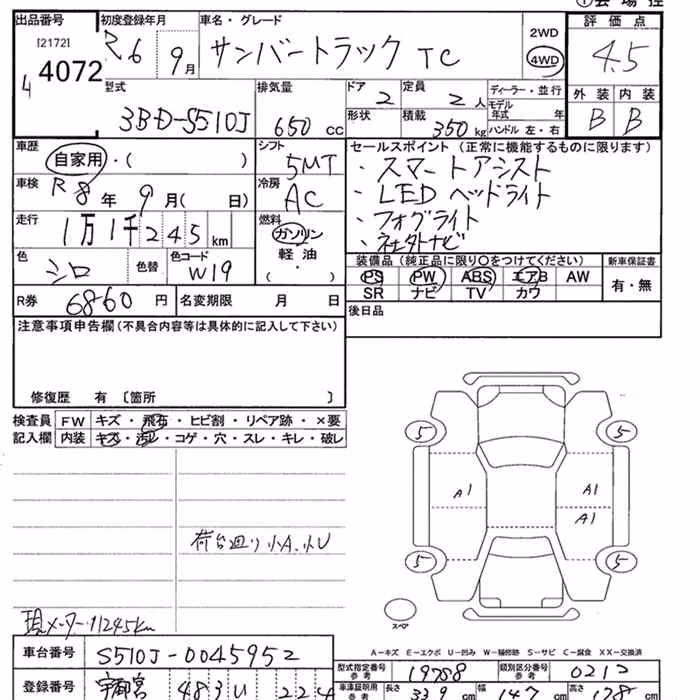 出品番号 初度登録年月 車名・グレード 2WD 評価点
[2172] R6 9月 サンバートラック TC 4WD 4.5
4072
型式 排気量 ドア 2 定員 2人 ディーラー・並行 外装 内装
3BD-S510J 650cc 形状 積載 350kg モデル年式 年 ハンドル 左・右 B B
車歴 シフト セールスポイント (正常に機能するものに限ります)
自家用・( ) 5MT ・スマートアシスト
車検 R8年 9月( 日) 冷房 AC ・LED ヘッドライト
走行 燃料 ・フォグライト
1万1千245km ガソリン ・社外ナビ
色 色替 色コード 軽油 装備品 (純正品に限り○をつけてください) 新車保証書
シロ W19 ・ PS PW ABS エアB AW 有・無
( ) SR ナビ TV カワ
R券 6860円 名変期限 月 日 後日品
注意事項申告欄(不具合内容等は具体的に記入して下さい)
修復歴 有 [箇所 ]
検査員 FW キズ・飛石・ヒビ割・リペア跡・×要
記入欄 内装 キズ・汚レ・コゲ・穴・スレ・キレ・破レ
5 5
A1 A1
A1
荷台廻り 小A.小U
5 5
現メーター11245km
スペア
A-キズ E-エクボ U-凹み W-補修跡 S-サビ C-腐食 XX-交換済
車台番号 S510J-0045952
型式指定番号 参考 19788 類別区分番号 参考 0212
登録番号 宇都宮 483 U 224
車庫証明用 参考 長さ 339cm 幅 147cm 高さ 178cm